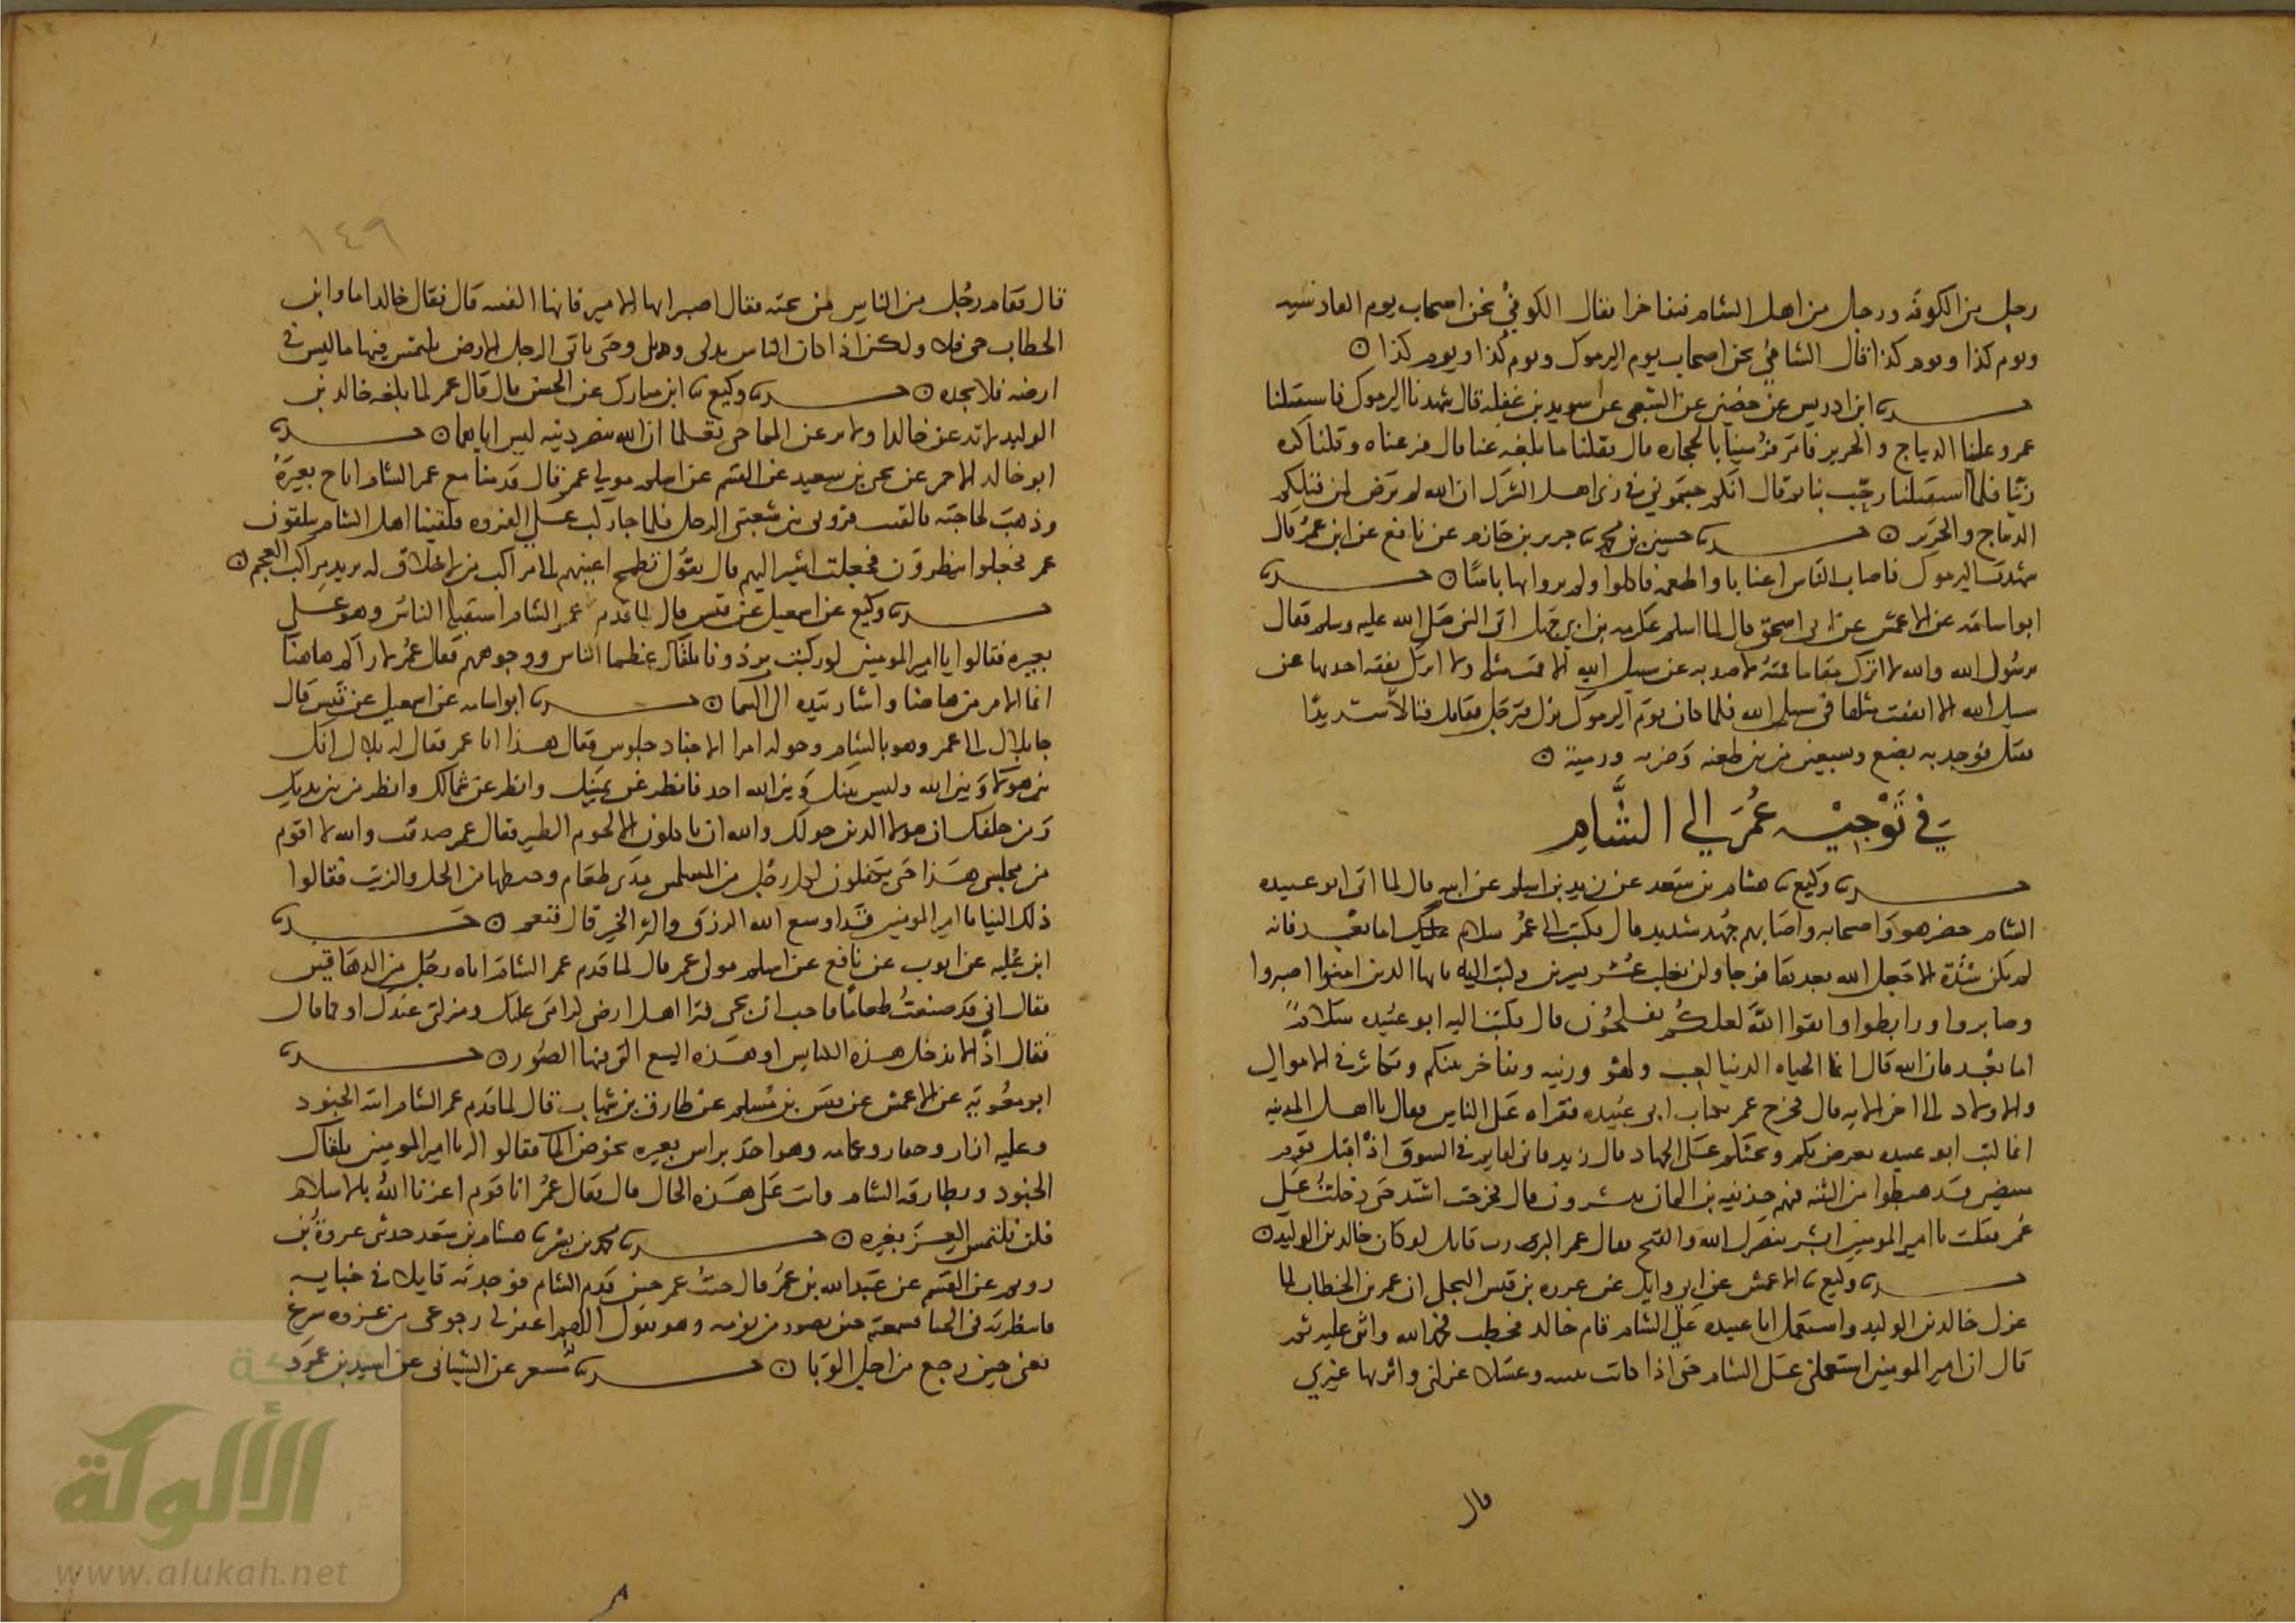 رجل من الكوفة ورجل من اهل الشام فتفاخرا فقال الكوفي نحن اصحاب يوم القادسيه
ويوم كذا ويوم كذا قال الشامي نحن اصحاب يوم اليرموك ويوم كذا ويوم كذا ن
حدثنا ابن ادريس عن حصين عن الشعبي عن سويد بن غفله قال شهدنا اليرموك فاستقبلنا
عمر وعلينا الديباج والحرير فامر فرمينا بالحجاره قال فقلنا ما بلغه عنا قال فنزعناه وقلنا كره
زينا فلما استقبلنا رحب بنا ثم قال انكم جيتموني في زي اهل الشرك ان الله لم يرض لمن قبلكم
الديباج والحرير ن حدثنا حسين بن محمد ثنا جرير بن حازم عن نافع عن ابن عمر قال
شهدت اليرموك فاصاب الناس اعنابا واطعمه فاكلوا ولم يروا بها باسا ن حدثنا
ابو اسامه عن الاعمش عن ابي اسحق قال لما اسلم عكرمه بن ابي جهل اتى النبي صلى الله عليه وسلم فقال
يرسول الله والله لا اترك مقاما قمته لاصد به عن سبيل الله الا قمت مثله ولا اترك نفقه اصد بها عن
سبيل الله الا انفقت مثلها في سبيل الله فلما كان يوم اليرموك نزل فترجل فقاتل قتالا شديدا
فقتل فوجد به بضع وسبعين من بين طعنه وضربه ورمية ن
في تَوْجيْه عُمَر الى الشَّام
حدثنا وكيع ثنا هشام بن سعد عن زيد بن اسلم عن ابيه قال لما اتى ابو عبيده
الشام حصر هو واصحابه واصابهم جهد شديد قال فكتب الى عمر سلام عليك اما بعد فانه
لم تكن شدة الا جعل الله بعدها فرجا ولن يغلب عسر يسرين وكتب اليه يايها الذين امنوا اصبروا
وصابروا ورابطوا واتقوا الله لعلكم تفلحون قال فكتب اليه ابو عبيده سلام
اما بعد فان الله قال انما الحياه الدنيا لعب ولهو وزينه وتفاخر بينكم وتكاثر في الاموال
والاولاد الى اخر الايه قال فخرج عمر بكتاب ابي عبيده فقراه على الناس فقال يا اهل المدينه
انما كتب ابو عبيده يعرض بكم ويحثكم على الجهاد قال زيد قال ابي فاني لقايم في السوق اذ اقبل قوم
مبيضين قد هبطوا من الثنيه فيهم حذيفه بن اليمان يبشرون قال فخرجت اشتد حتى دخلت على
عمر فقلت يا امير المومنين ابشر بنصر الله والفتح فقال عمر الله اكبر رب قايل لو كان خالد بن الوليد ن
حدثنا وكيع ثنا الاعمش عن ابي وايل عن عزره بن قيس البجلي ان عمر بن الخطاب لما
عزل خالد بن الوليد واستعمل ابا عبيده على الشام قام خالد فخطب فحمد الله واثنى عليه ثم
قال ان امير المومنين استعملني على الشام حتى اذا كانت بثنيه وعسلا عزلني واثر بها غيري
قال
١٤٩
قال فقام رجل من الناس من تحته فقال اصبر ايها الامير فانها الفتنه قال فقال خالد اما وابن
الخطاب حي فلا ولكن اذا كان الناس بذي بلي وحتى ياتي الرجل الارض يلتمس فيها ما ليس في
ارضه فلا يجده ن حدثنا وكيع ثنا ابن مبارك عن الحسن قال قال عمر لما بلغه خالد بن
الوليد لانزعن خالدا ولانزعن المثنى حتى تعلما ان الله ينصر دينه ليس اياهما ن حدثنا
ابو خالد الاحمر عن يحيى بن سعيد عن القسم عن اسلم مولى عمر قال قدمنا مع عمر الشام اناخ بعيره
وذهب لحاجته فالقيت فروتي بين شعبتي الرحل فلما جا ركب على الفروه فلقينا اهل الشام يتلقون
عمر فجعلوا ينظرون فجعلت اشير اليهم قال يقول تطمح اعينهم الى مراكب من لا خلاق له يريد مراكب العجم ن
حدثنا وكيع عن اسمعيل عن قيس قال لما قدم عمر الشام استقبله الناس وهو على
بعيره فقالوا يا امير المومنين لو ركبت برذونا يلقاك عظما الناس ووجوههم فقال عمر لا اراكم هاهنا
انما الامر من هاهنا واشار بيده الى السما ن حدثنا ابو اسامه عن اسمعيل عن قيس قال
جا بلال الى عمر وهو بالشام وحوله امرا الاجناد جلوس فقال هذا انا عمر فقال له بلال انك
بين هولا وبين الله وليس بينك وبين الله احد فانظر عن يمينك وانظر عن شمالك وانظر من بين يديك
ومن خلفك ان هولا الذين حولك والله ان ياكلون الا لحوم الطير فقال عمر صدقت والله لا اقوم
من مجلسي هذا حتى يتكفلون لكل رجل من المسلمين مدى طعام وحظهما من الخل والزيت فقالوا
ذلك الينا يا امير المومنين قد اوسع الله الرزق واكثر الخير قال فنعم ن حدثنا
ابن علية عن ايوب عن نافع عن اسلم مولى عمر قال لما قدم عمر الشام اتاه رجل من الدهاقين
فقال اني قد صنعت طعاما فاحب ان تجي فيرا اهل ارضي كرامتي عليك ومنزلتي عندك او كما قال
فقال انا لا ندخل هذه الكنايس او هذه البيع التي فيها الصور ن حدثنا
ابو معوية عن الاعمش عن قيس بن مسلم عن طارق بن شهاب قال لما قدم عمر الشام اتته الجنود
وعليه ازار وخفان وعمامه وهو اخذ براس بعيره يخوض الما فقالوا له يا امير المومنين يلقاك
الجنود وبطارقه الشام وانت على هذه الحال قال فقال عمر انا قوم اعزنا الله بالاسلام
فلن نلتمس العز بغيره ن حدثنا محمد بن بشر ثنا هشام بن سعد حدثني عروة بن
رويم عن القسم عن عبد الله بن عمر قال جئت عمر حين قدم الشام فوجدته قايلا في خبايه
فانتظرته في الخبا فسمعته حين تضور من نومه وهو يقول اللهم اغفر لي رجوعي من غزوه سرغ
يعني حين رجع من اجل الوبا ن حدثنا مسعر عن الشيباني عن اسير بن عمرو
شبكة
الألوكة
www.alukah.net